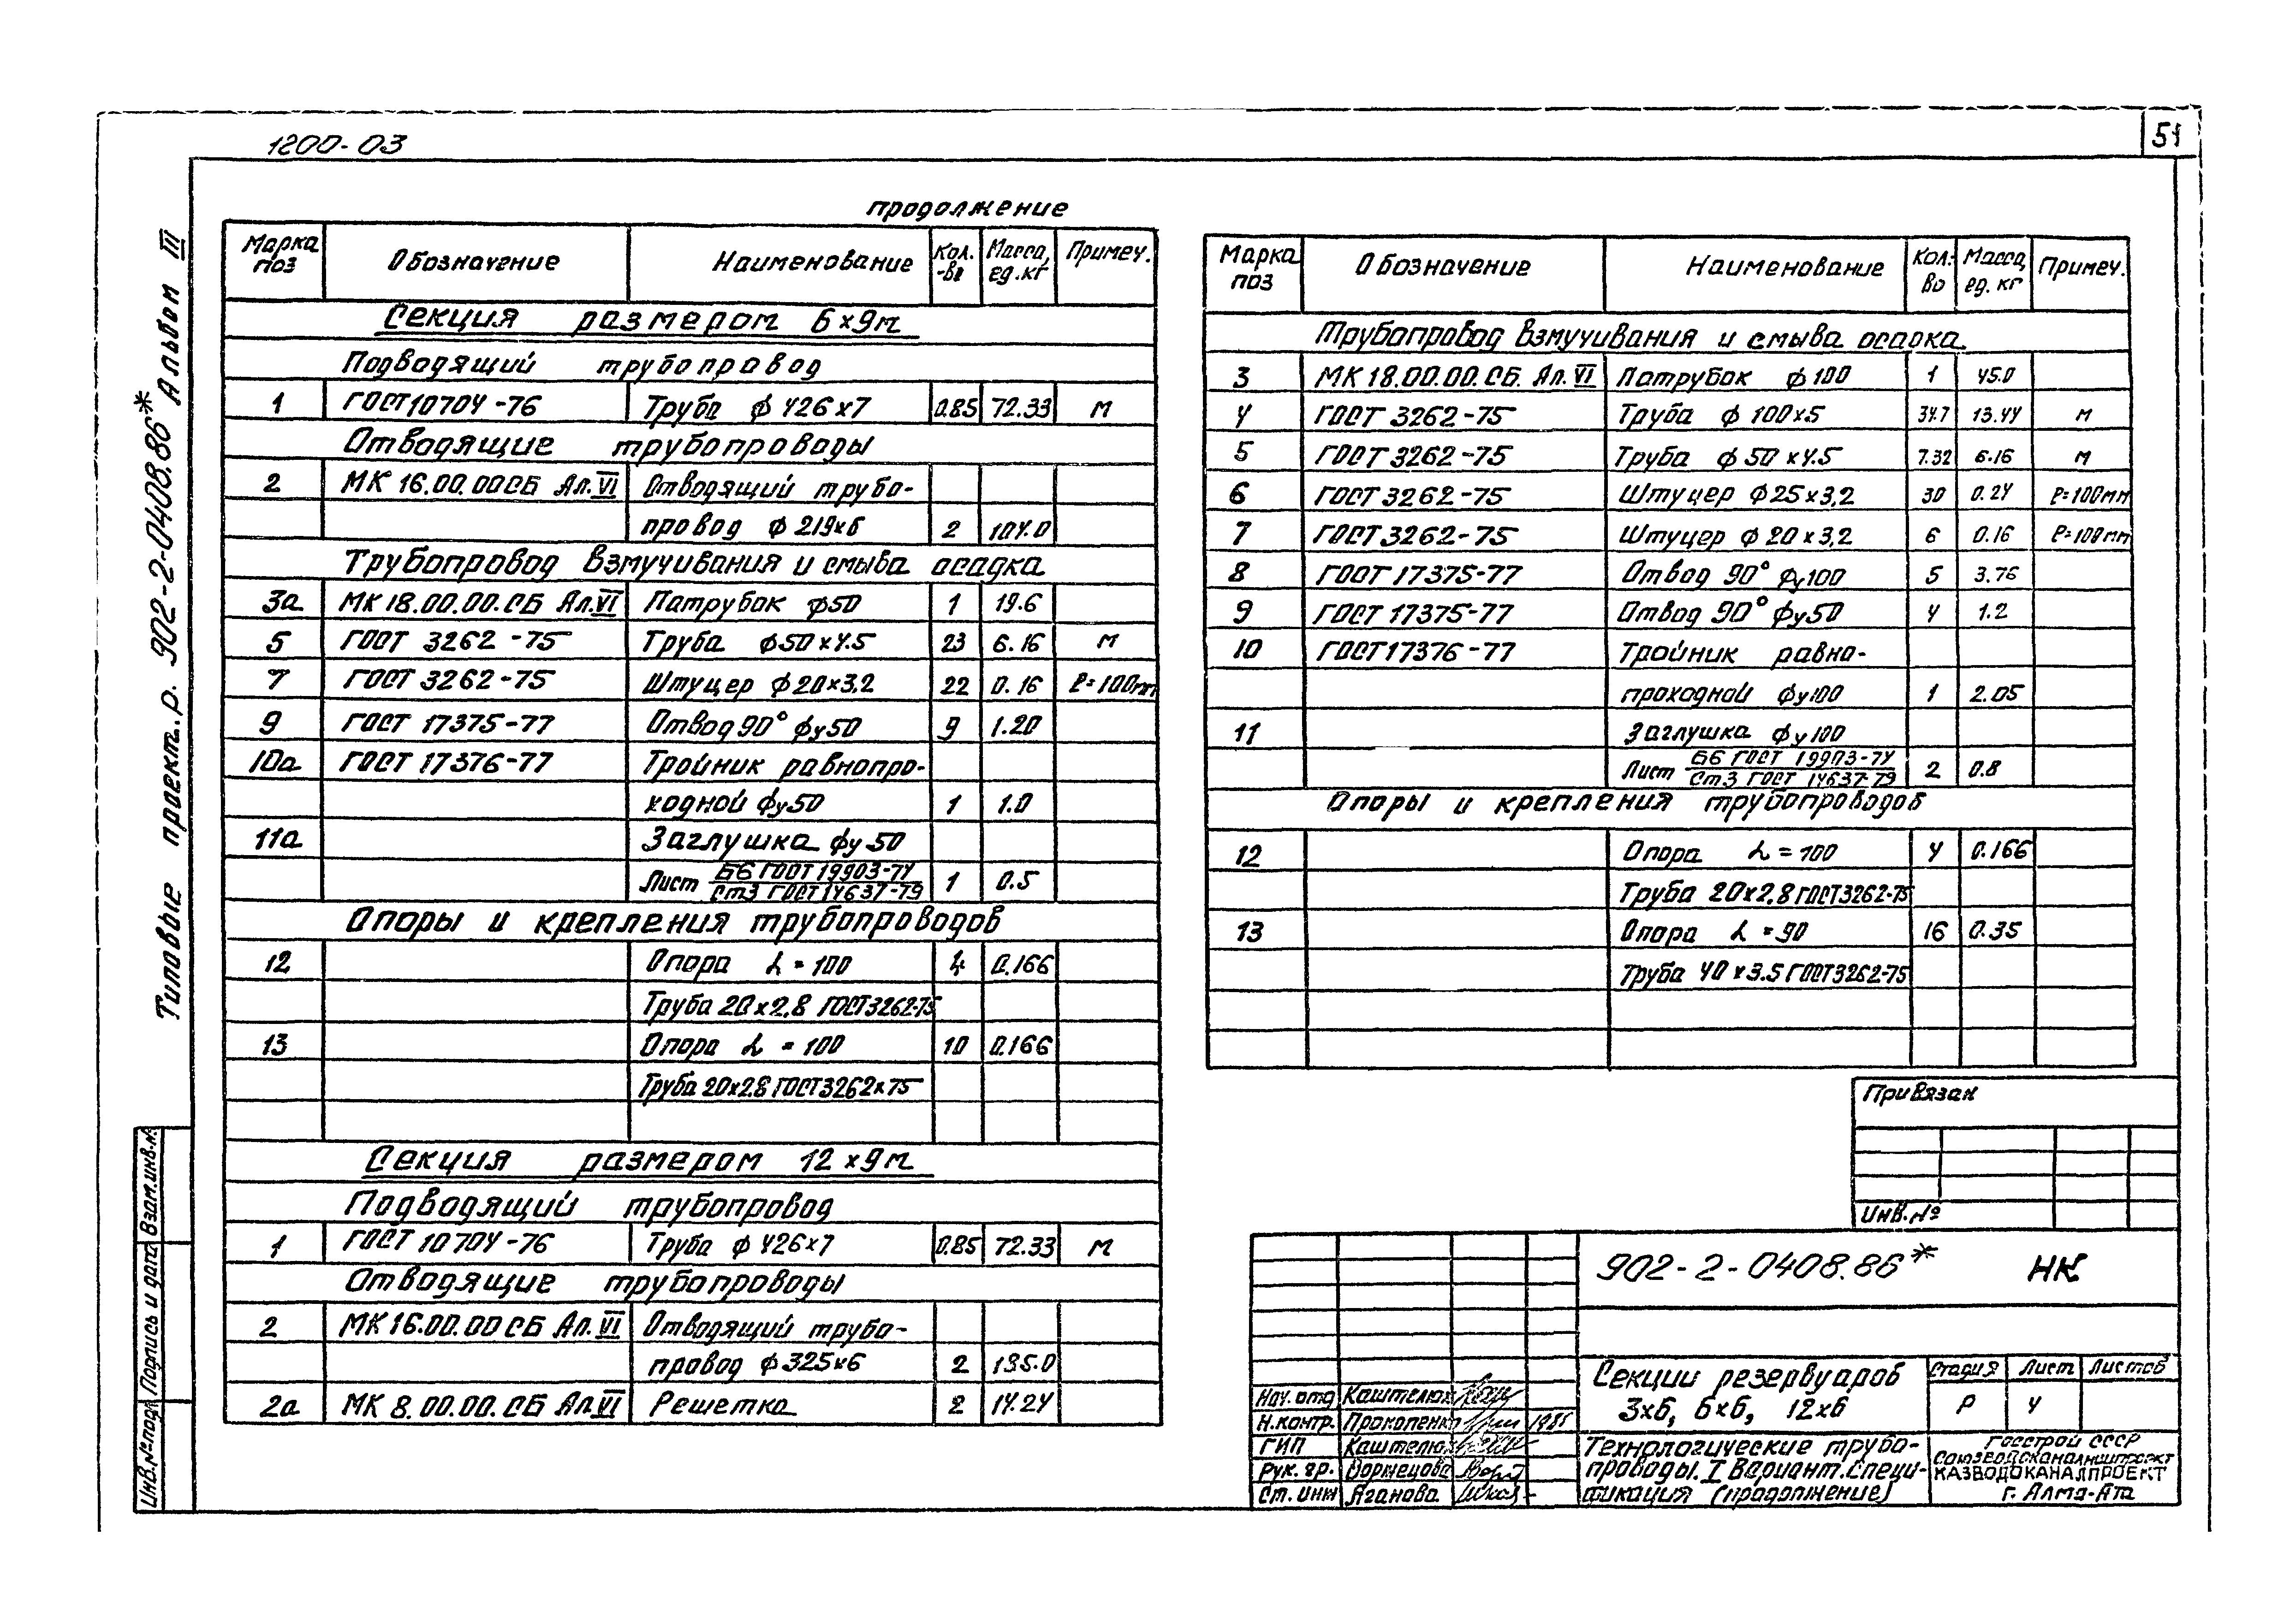 1200-03
51
Типовые проект.р. 902-2-0408.86* Альбом III
продолжение
Марка поз Обозначение Наименование Кол.-во Масса, ед.кг Примеч.
Секция размером 6х9м
Подводящий трубопровод
1 ГОСТ10704-76 Труба ф 426х7 0.85 72.33 м
Отводящие трубопроводы
2 МК 16.00.00СБ Ал.VI Отводящий трубо-
провод ф 219х6 2 104.0
Трубопровод взмучивания и смыва осадка
3а МК18.00.00.СБ Ал.VI Патрубок ф50 1 19.6
5 ГОСТ 3262-75 Труба ф50х4.5 23 6.16 м
7 ГОСТ 3262-75 Штуцер ф20х3,2 22 0.16 ℓ=100мм
9 ГОСТ 17375-77 Отвод 90° фу50 9 1.20
10а ГОСТ 17376-77 Тройник равнопро-
ходной фу50 1 1.0
11а Заглушка фу 50
Лист Б6 ГОСТ 19903-74
Ст3 ГОСТ 14637-79 1 0.5
Опоры и крепления трубопроводов
12 Опора L=100 4 0.166
Труба 20х2.8 ГОСТ3262-75
13 Опора L=100 10 0.166
Труба 20х2.8 ГОСТ3262х75
Секция размером 12х9м
Подводящий трубопровод
1 ГОСТ 10704-76 Труба ф 426х7 0.85 72.33 м
Отводящие трубопроводы
2 МК16.00.00СБ Ал.VI Отводящий трубо-
провод ф325х6 2 135.0
2а МК 8.00.00.СБ Ал.VI Решетка 2 14.24
Марка поз Обозначение Наименование Кол.-во Масса, ед. кг Примеч.
Трубопровод взмучивания и смыва осадка
3 МК18.00.00.СБ. Ал.VI Патрубок ф100 1 45.0
4 ГОСТ 3262-75 Труба ф 100х5 34.7 13.44 м
5 ГОСТ 3262-75 Труба ф50х4.5 7.32 6.16 м
6 ГОСТ 3262-75 Штуцер ф25х3,2 30 0.24 ℓ=100мм
7 ГОСТ3262-75 Штуцер ф20х3,2 6 0.16 ℓ=100мм
8 ГОСТ17375-77 Отвод 90° фу100 5 3.76
9 ГОСТ 17375-77 Отвод 90° фу50 4 1.2
10 ГОСТ17376-77 Тройник равно-
проходной фу100 1 2.05
11 Заглушка фу100
Лист Б6 ГОСТ 19903-74
Ст3 ГОСТ 14637-79 2 0.8
Опоры и крепления трубопроводов
12 Опора L=100 4 0.166
Труба 20х2,8 ГОСТ3262-75
13 Опора L=90 16 0.35
Труба 40х3.5 ГОСТ3262-75
Привязан
Инв.№
902-2-0408.86* НК
Секции резервуаров
3х6, 6х6, 12х6
Стадия Лист Листов
Р 4
Нач. отд Каштелюк
Н.контр. Прокопенко 1985
ГИП Каштелюк
Рук. гр.
Ст. инж Аганова
Технологические трубо-
проводы. I Вариант. Специ-
фикация (продолжение)
Госстрой СССР
Союзводоканалниипроект
КАЗВОДОКАНАЛПРОЕКТ
г. Алма-Ата
Взам.инв.№
Подпись и дата
Инв.№подл